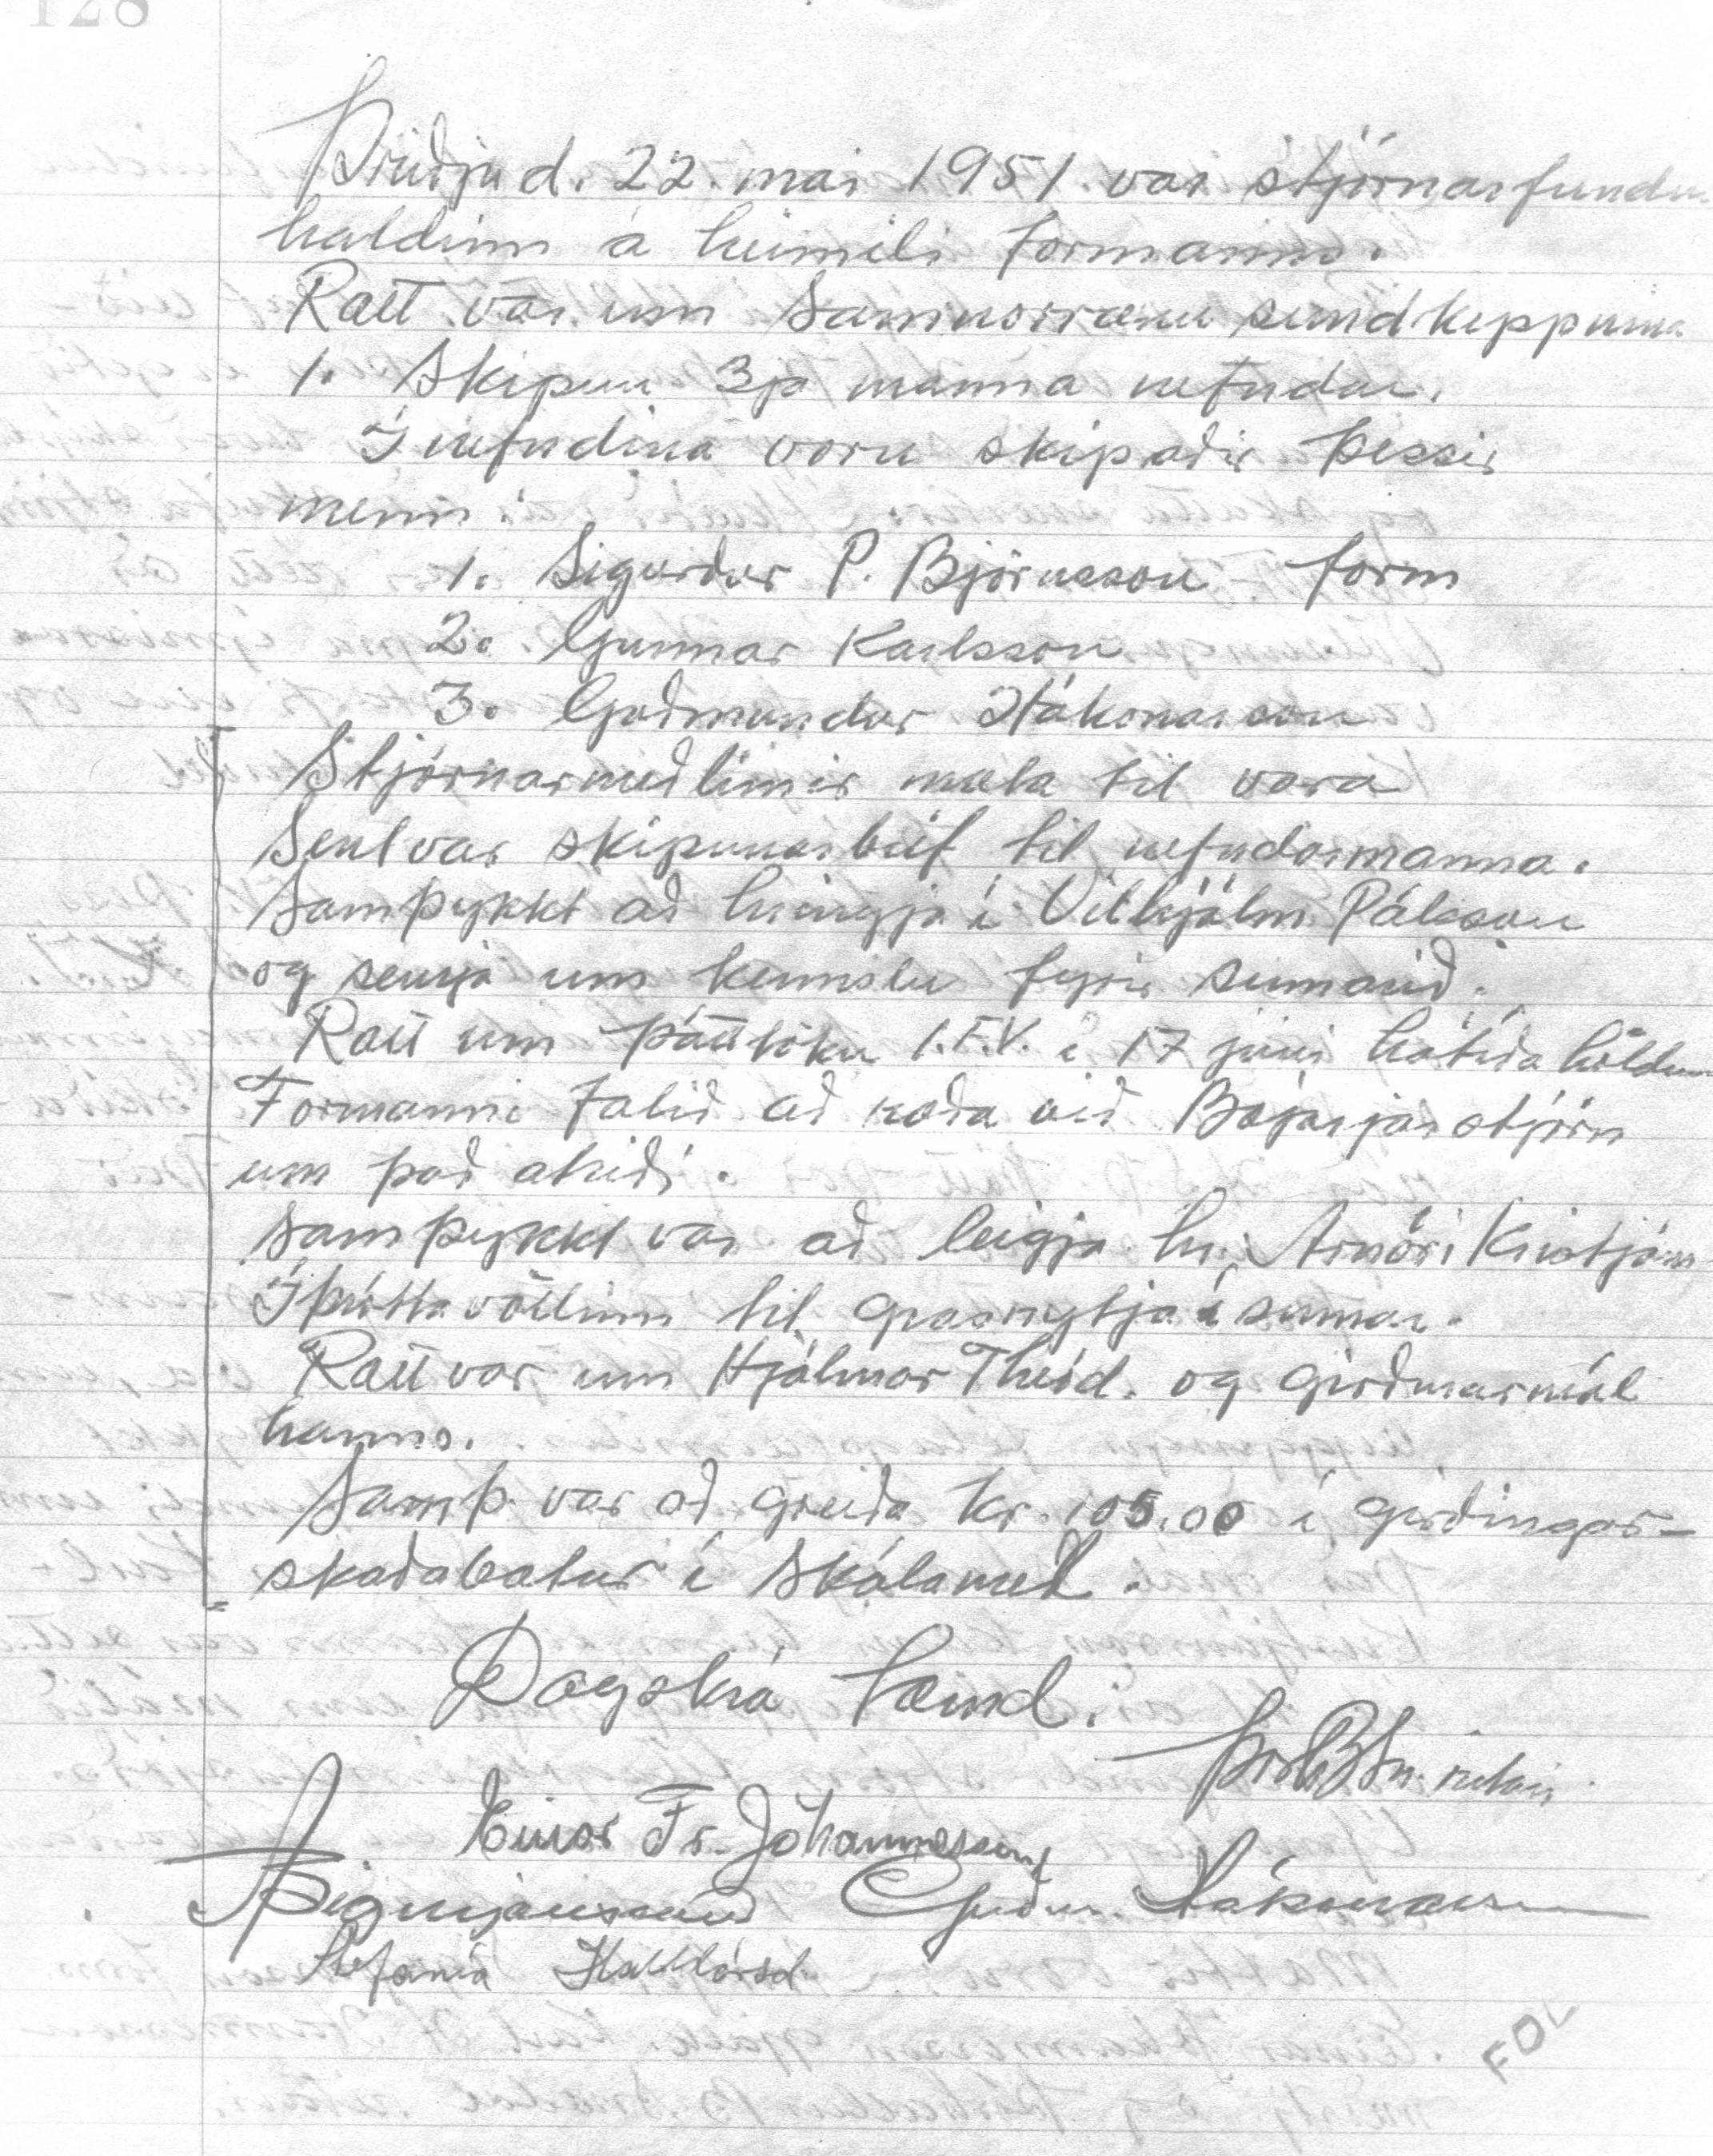 128
Þriðjud. 22. maí 1951 var stjórnarfundur
haldinn á heimili formanns.
Rætt var um Samnorrænu sundkeppnina
1. Skipun 3ja manna nefndar.
Í nefndina voru skipaðir þessir
menn.
1. Sigurður P. Björnsson form
2. Gunnar Karlsson
3. Guðmundur Hákonarson
Stjórnarmeðlimir mæta til vara
Sent var skipunarbréf til nefndarmanna.
Samþykkt að hringja í Vilhjálm Pálsson
og semja um kennslu fyrir sumarið.
Rætt um þátttöku Í.F.V. í 17 júní hátíðahöldum
Formanni falið að ræða við Bæjarstjórn
um það atriði.
Samþykkt var að leigja hr. Arnóri Kristjáns
Íþróttavöllinn til grasnytja í sumar.
Rætt var um Hjálmar Theód. og girðingarmál
hanns.
Samþ. var að greiða kr. 105.00 í girðingar-
skaðabætur í Skálamel.
Dagskrá tæmd.
ritari
Einar Fr. Jóhannesson
Guðm. Hákonarson
Stefanía Halldórsd
FOL